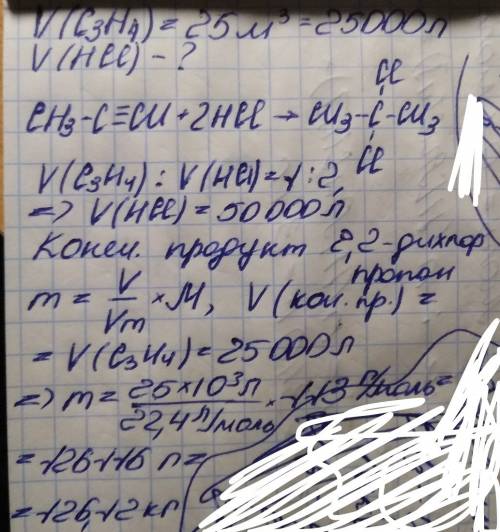 V(C₃H₄) = 25 м³ = 25000 л
V(HCl) - ?
Cl
CH₃-C≡CH + 2HCl → CH₃-C-CH₃
Cl
V(C₃H₄) : V(HCl) = 1 : 2,
=> V(HCl) = 50000 л
Конеч. продукт 2,2-дихлор
пропан
m = V/Vm × M, V(кон. пр.) =
= V(C₃H₄) = 25000 л
=> m = 25×10³ л / 22,4 л/моль × 113 г/моль =
= 126116 г =
= 126,12 кг